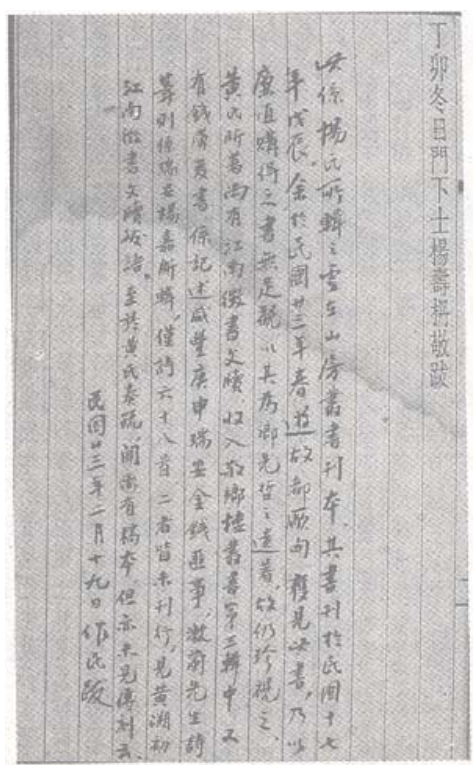 丁卯冬日門下士楊壽枏敬跋
此係楊氏所輯之雲在山房叢書刊本其書刊於民國十七
年戊辰余於民國廿三年春遊故都廠甸獲見此書乃以
廉直購得之書無足觀以其爲鄉先哲之遺著故仍珍視之
黃氏所著尚有江南徵書文牘收入敬鄉樓叢書第三輯中又
有錢虜爰書係記述咸豐庚申瑞安金錢匪事漱蘭先生詩
葺則係瑞安楊嘉所輯僅詩六十八首二者皆未刊行見黃溯初
江南徵書文牘跋語至於黃氏奏疏聞尚有稿本但亦未見傳刻云
民國廿三年二月十九日作民跋